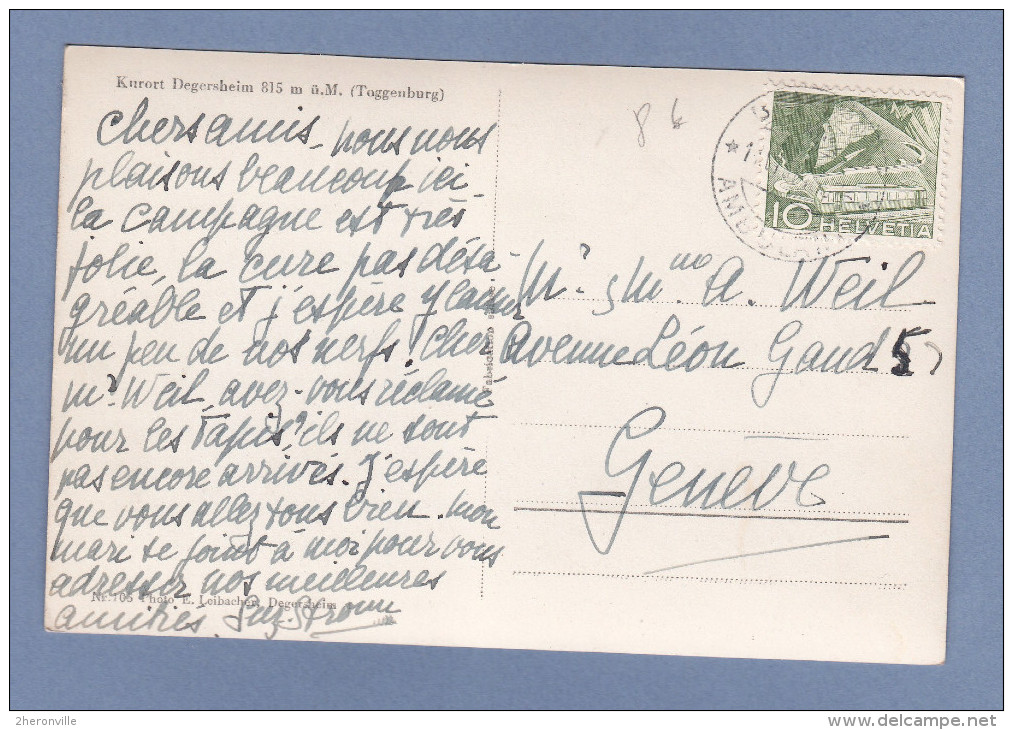 Kurort Degersheim 815 m ü.M. (Toggenburg)
chers amis, nous nous
plaisons beaucoup ici
la campagne est très
jolie, la cure pas désa-
gréable et j'espère y laisser
un peu de nos nerfs! Cher
Mr Weil, avez-vous réclamé
pour les tapis? ils ne sont
pas encore arrivés. J'espère
que vous allez tous bien. Mon
mari se joint à moi pour vous
adresser nos meilleures
Nr. 105 Photo E. Loibacher, Degersheim
amitiés.
10 HELVETIA
AMBULANT
Mr Mme A. Weil
avenue Léon Gaud 5
Genève
2heronville
www.delcampe.net